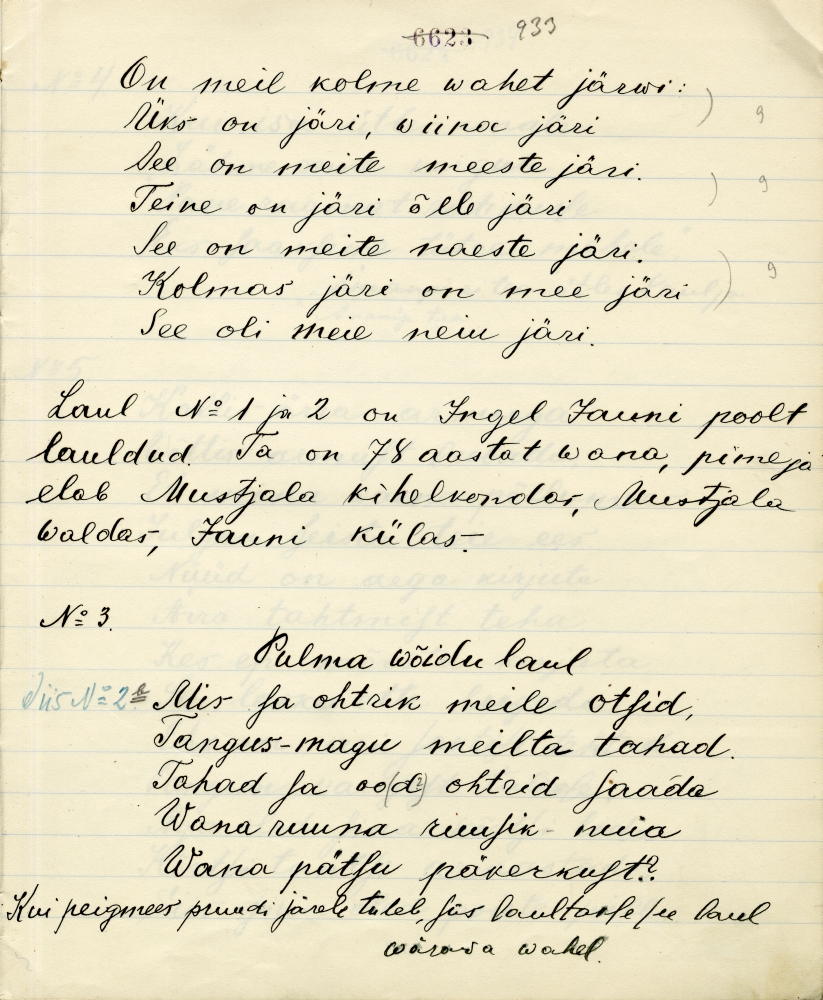 6623 933
On meil kolme wahet järwi:
Üks on järi, wiina järi 9
See on meite meeste järi.
Teine on järi õlle järi 9
See on meite naeste järi.
Kolmas järi on mee järi 9
See oli meie neiu järi.
Laul № 1 ja 2 on Ingel Jauni poolt
lauldud. Ta on 78 aastat wana, pime ja
elab Mustjala kihelkondas, Mustjala
waldas, Jauni külas.-
№ 3.
Pulma wõidu laul
Viis № 2b Mis sa ohtrik meile otsid,
Tangus-magu meilta tahad.
Tahad sa oo(d?) ohtrid saada
Wana ruuna ruusik-nuia
Wana pätsu päkerkust?
Kui peigmees pruudi järele tuleb, siis laultakse see laul
wärawa wahel.